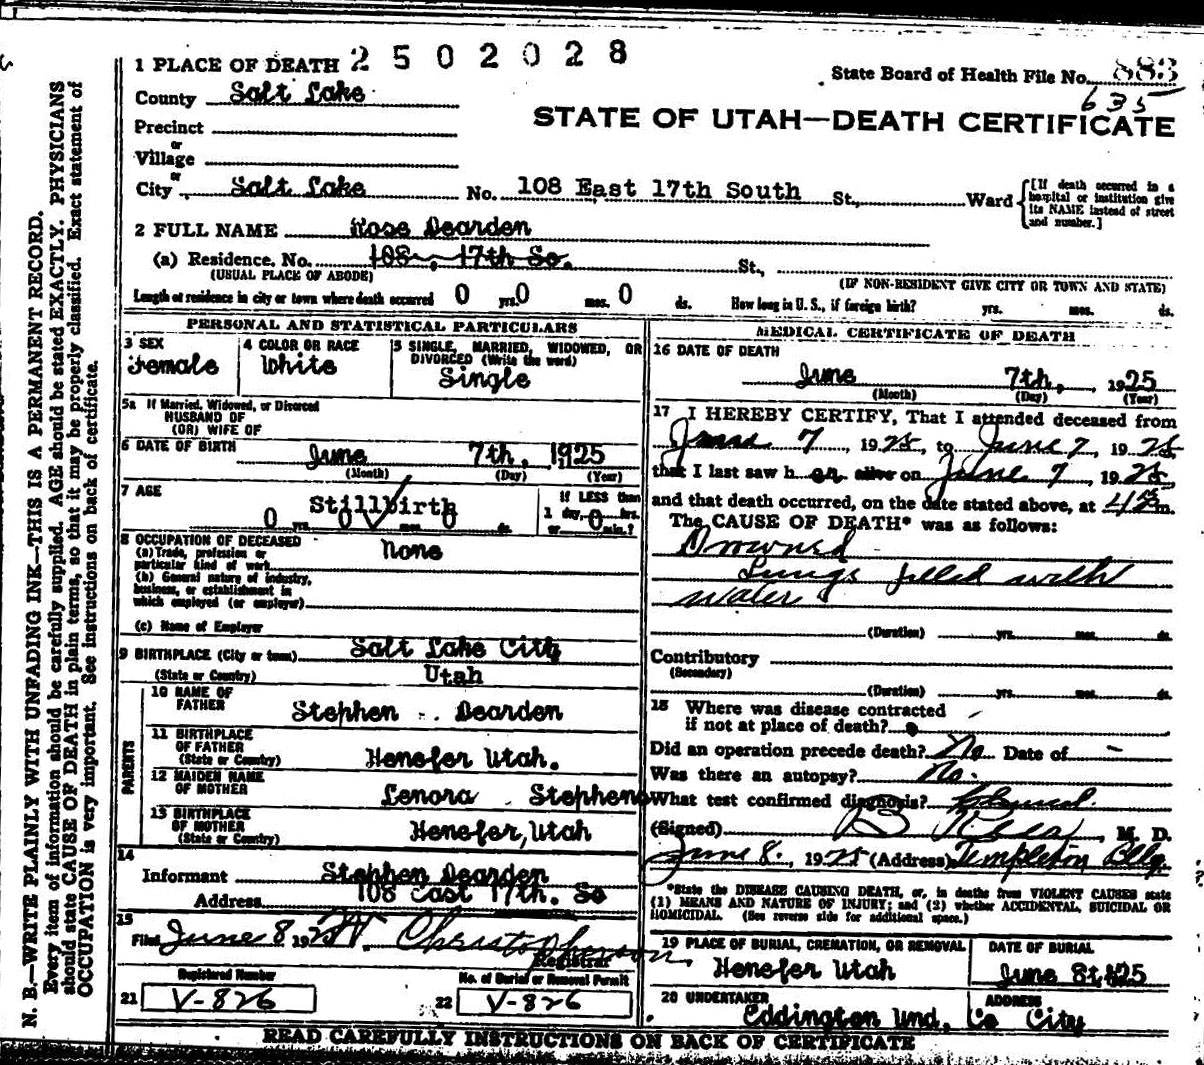 2502028
1 PLACE OF DEATH
State Board of Health File No. 883
635
County Salt Lake
STATE OF UTAH—DEATH CERTIFICATE
Precinct
or
Village
or
City Salt Lake No. 108 East 17th South St., Ward
[If death occurred in a hospital or institution give its NAME instead of street and number.]
2 FULL NAME Rose Dearden
(a) Residence, No. 108 , 17th So. St.,
(USUAL PLACE OF ABODE) (IF NON-RESIDENT GIVE CITY OR TOWN AND STATE)
Length of residence in city or town where death occurred 0 yrs. 0 mos. 0 ds. How long in U. S., if foreign birth? yrs. mos. ds.
PERSONAL AND STATISTICAL PARTICULARS
3 SEX
Female
4 COLOR OR RACE
White
5 SINGLE, MARRIED, WIDOWED, OR
DIVORCED (Write the word)
Single
5a If Married, Widowed, or Divorced
HUSBAND OF
(OR) WIFE OF
6 DATE OF BIRTH June 7th, 1925
(Month) (Day) (Year)
7 AGE
Stillbirth
0 yrs. 0 mos. 0 ds.
If LESS than
1 day, 0 hrs.
or min.?
8 OCCUPATION OF DECEASED
(a) Trade, profession or
particular kind of work None
(b) General nature of industry,
business, or establishment in
which employed (or employer)
(c) Name of Employer
9 BIRTHPLACE (City or town) Salt Lake City
(State or Country) Utah
PARENTS
10 NAME OF
FATHER Stephen Dearden
11 BIRTHPLACE
OF FATHER
(State or Country) Henefer Utah.
12 MAIDEN NAME
OF MOTHER Lenora Stephens
13 BIRTHPLACE
OF MOTHER
(State or Country) Henefer, Utah
14
Informant Stephen Dearden
Address 108 East 17th. So
15
Filed June 8 1925 W. Christopherson,
Registrar
Registered Number
21 V-826
No. of Burial or Removal Permit
22 V-826
MEDICAL CERTIFICATE OF DEATH
16 DATE OF DEATH
June 7th, 1925
(Month) (Day) (Year)
17 I HEREBY CERTIFY, That I attended deceased from
June 7, 1925, to June 7, 1925
that I last saw h er alive on June 7, 1925,
and that death occurred, on the date stated above, at m.
The CAUSE OF DEATH* was as follows:
Drowned
Lungs filled with
water
(Duration) yrs. mos. ds.
Contributory
(Secondary)
(Duration) yrs. mos. ds.
18 Where was disease contracted
if not at place of death?
Did an operation precede death? No Date of –
Was there an autopsy? No.
What test confirmed diagnosis?
(Signed) M. D.
June 8, 1925 (Address) Templeton Bldg.
*State the DISEASE CAUSING DEATH, or, in deaths from VIOLENT CAUSES state
(1) MEANS AND NATURE OF INJURY; and (2) whether ACCIDENTAL, SUICIDAL OR
HOMICIDAL. (See reverse side for additional space.)
19 PLACE OF BURIAL, CREMATION, OR REMOVAL
Henefer Utah
DATE OF BURIAL
June 8th, 25
20 UNDERTAKER
Eddington Und, Co
ADDRESS
City
READ CAREFULLY INSTRUCTIONS ON BACK OF CERTIFICATE
N. B.—WRITE PLAINLY WITH UNFADING INK—THIS IS A PERMANENT RECORD.
Every item of information should be carefully supplied. AGE should be stated EXACTLY. PHYSICIANS
should state CAUSE OF DEATH in plain terms, so that it may be properly classified. Exact statement of
OCCUPATION is very important. See instructions on back of certificate.